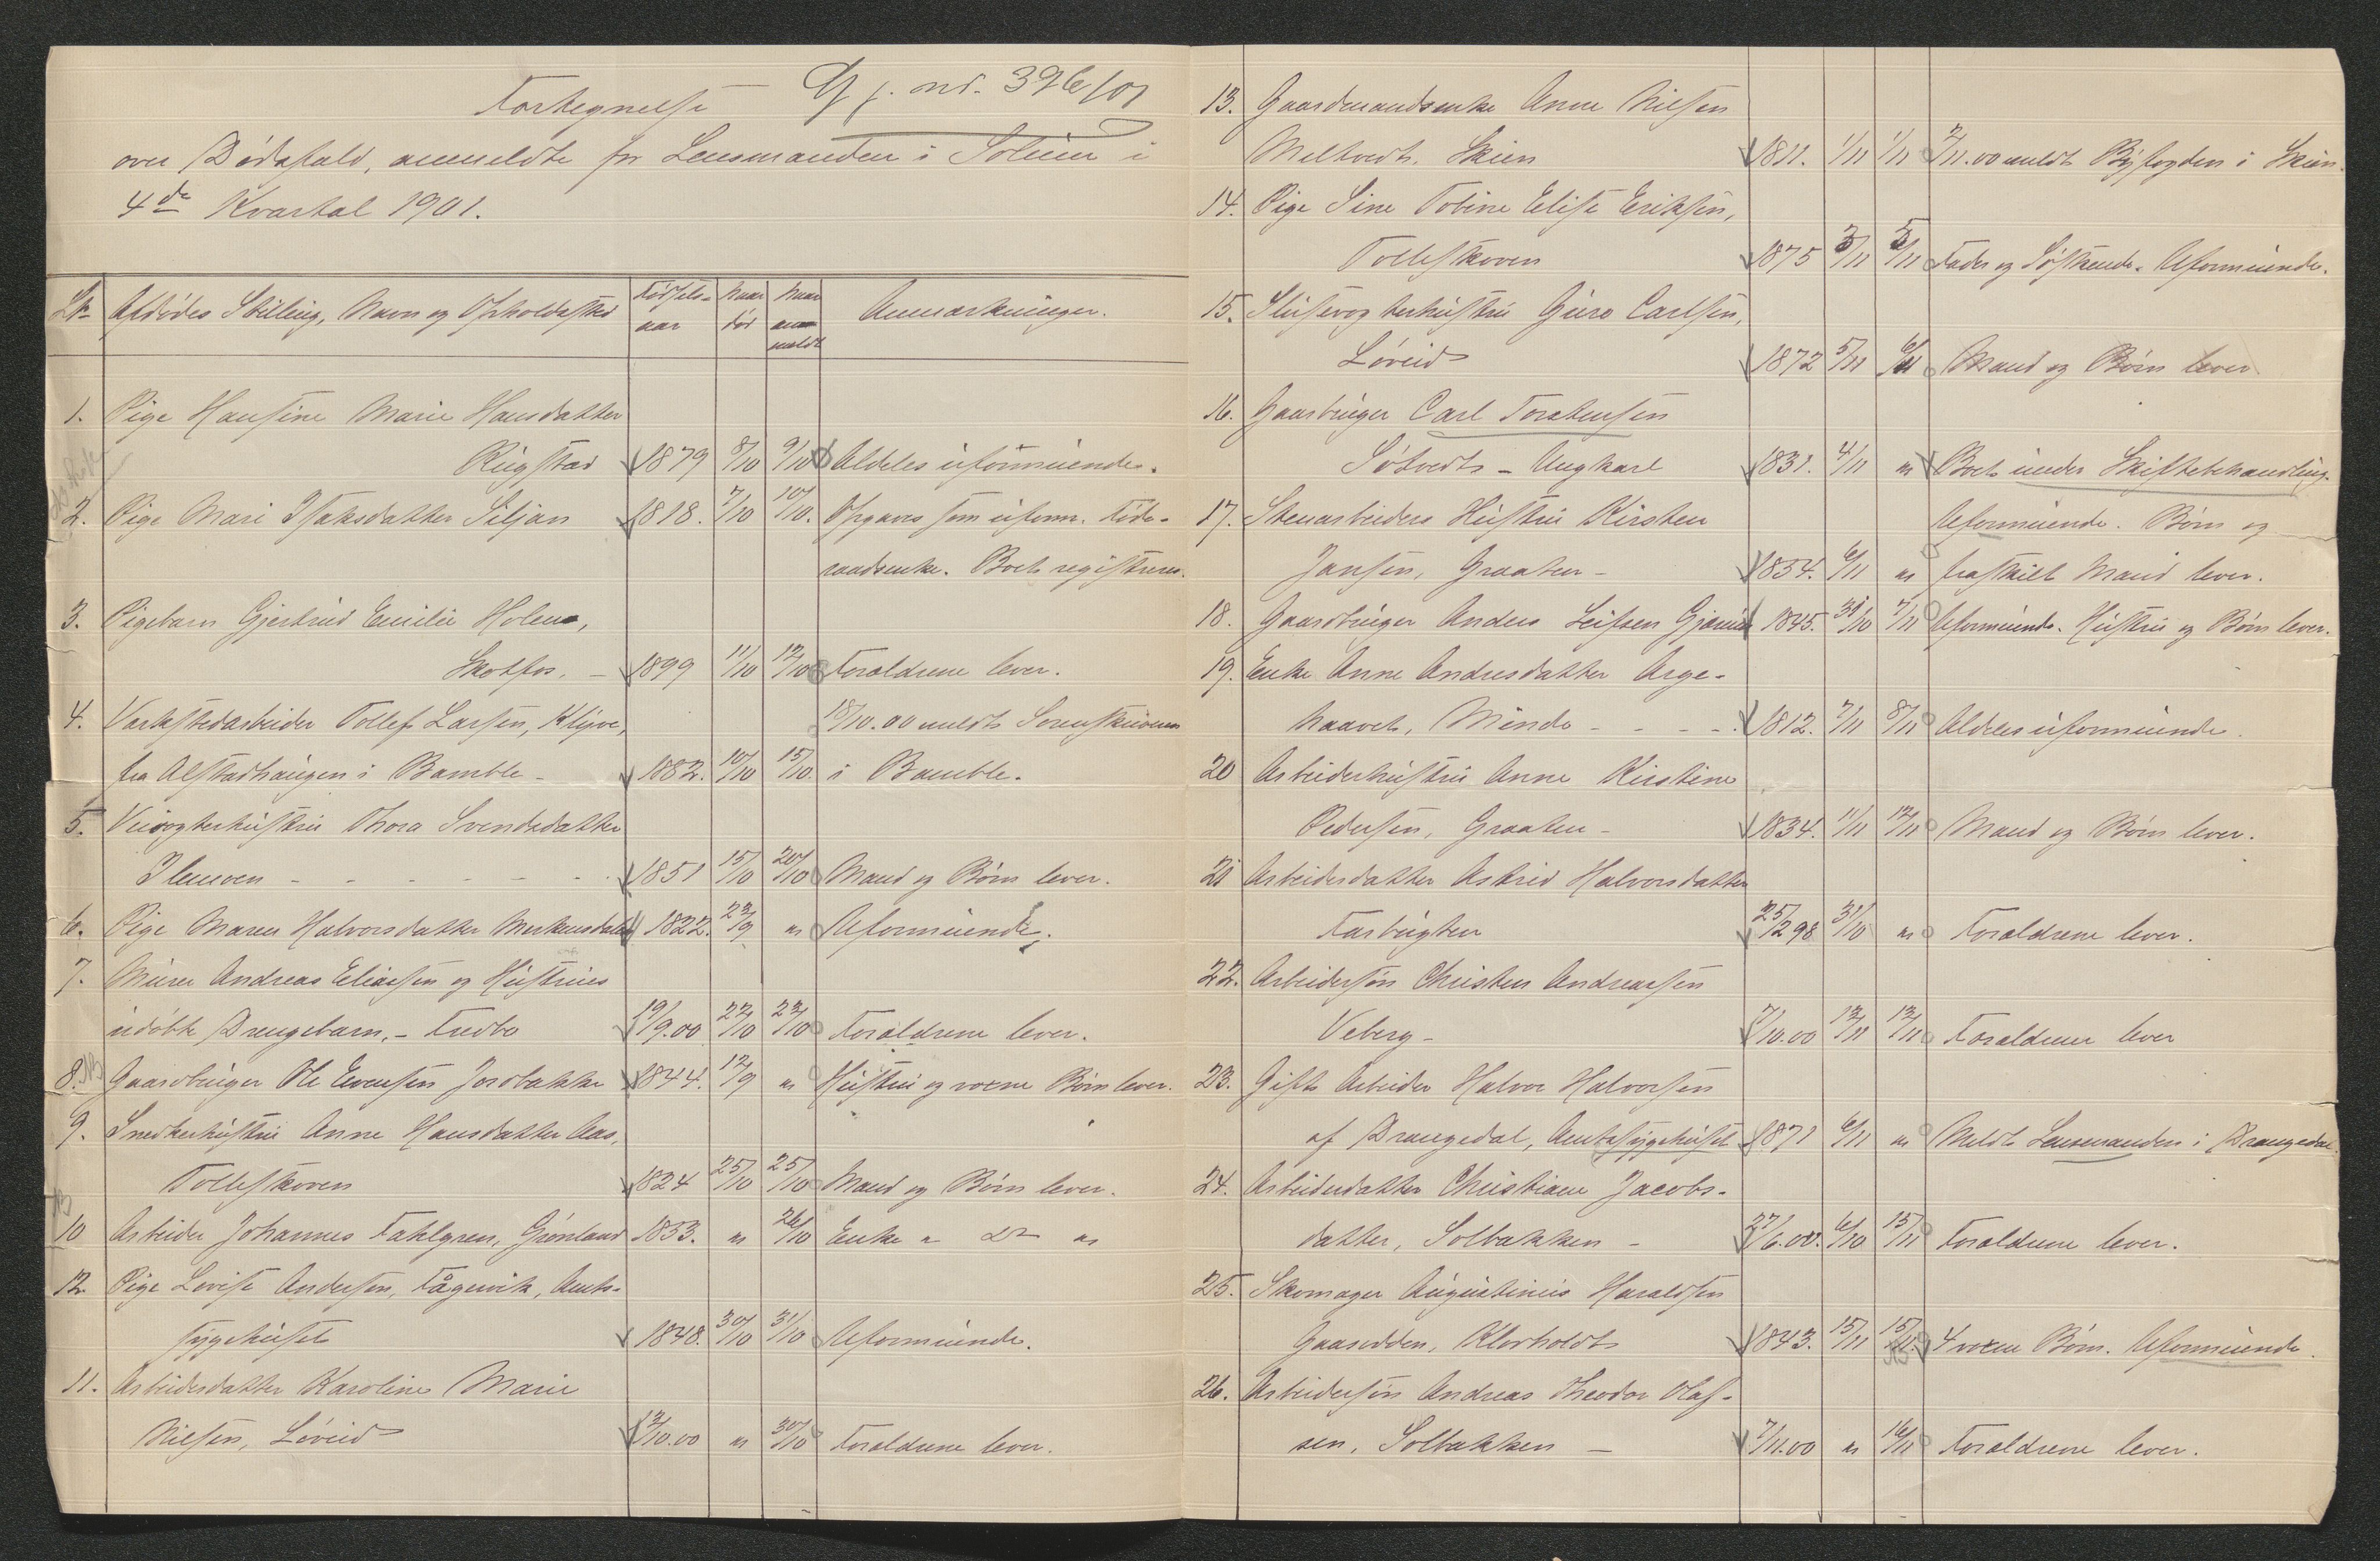 Fortegnelse
J. no. 396/01
over Dødsfald, anmeldte for Lensmanden i Solum i
4de Kvartal 1901.
Afdødes Stilling, Navn og Opholdssted Fødsels-aar Naar død Naar anmeldt Anmærkninger.
1. Pige Hansine Marie Hansdatter
Rugstad 1879 8/10 9/10 Aldeles uformuende.
2. Pige Mari Isaksdatter Siljan 1818. 7/10 10/10. Opgaves som uform. Føde-
raadsenke. Boet registreres.
3. Pigebarn Gjertrud Emilie Holm,
Skotfos. - 1899 11/10 12/10 Forældrene lever.
4. Værkstedarbeider Tollef Larsen, Klyve, 18/10.00 meldt Sorenskriveren
fra Alstadhaugen i Bamble - 1882. 10/10 15/10 i Bamble.
5. Veivogterhustru Thora Svendsdatter
1851 15/10 20/10 Mand og Børn lever.
6. Pige Maren Halvorsdatter 1822. 22/9 " Uformuende.
7. Murer Andreas Eliassen og Hustrues
udøbte Drengebarn, - Fredbo 19/9.00 22/10 23/10 Forældrene lever.
8. Gaardbruger Ole Evensen Jordbakke 1844. 12/9 " Hustru og voxne Børn lever.
9. Snedkerhustru Anne Hansdatter Aas,
Tollefskoven 1824 25/10 25/10 Mand og Børn lever.
10 Arbeider Johannes Fahlgren, Grønland 1853. " 26/10 Enke " do "
12. Pige Lovise Andersen, Fagervik, Amts-
sygehuset 1848. 30/10 31/10 Uformuende.
11. Arbeiderdatter Karoline Marie
Nielsen, Løveid 13/10.00 " 30/10 Forældrene lever.
13. Gaardmandsenke Anne Nielsen
Meltvedt. Skien 1811. 1/11 1/11 2/11.00 meldt Byfogden i Skien.
14. Pige Sine Tobine Elise Eriksen,
Tollefskoven 1875 3/11 5/11 Fader og Søskende. Uformuende.
15. Slusevogterhustru Guro Carlsen,
Løveid 1872 5/11 6/11 Mand og Børn lever.
16. Gaardbruger Carl Torstensen
Søtvedt - Ungkarl 1831. 4/11 " Boet under Skiftebehandling.
17. Stenarbeiders Hustru Kirsten Uformuende. Børn og
Jansen, Graaten - 1854. 6/11 " fraskilt Mand lever.
18. Gaardbruger Anders Leifsen 1845. 31/10 7/11 Uformuende. Hustru og Børn lever.
19. Enke Anne Andresdatter Aarge-
haavet, Melndo - - - 1812. 7/11 8/11 Aldeles uformuende.
20 Arbeiderhustru Anne Kirstine
Pedersen, Graaten - 1834. 11/11 12/11 Mand og Børn lever.
21 Arbeiderdatter Astrid Halvorsdatter
25/2 98 31/10 " Forældrene lever.
22. Arbeidersøn Christen Andreassen
Veberg - 7/10.00 12/11 13/11 Forældrene lever
23. Gift Arbeider Halvor Halvorsen
af Drangedal, Amtssygehuset 1871 6/11 " Meldt Lensmanden i Drangedal.
24. Arbeiderdatter Christiane Jacobs-
datter, Solbakken - 27/6.00. 6/10 15/11 Forældrene lever.
25. Skomager Augustinius Haraldsen
Gaasodden, Klovholdt 1843. 15/11 15/11. 4 voxne Børn. Uformuende.
26. Arbeidersøn Andreas Theodor Olaf-
sen, Solbakken - 7/11.00 " 16/11 Forældrene lever.